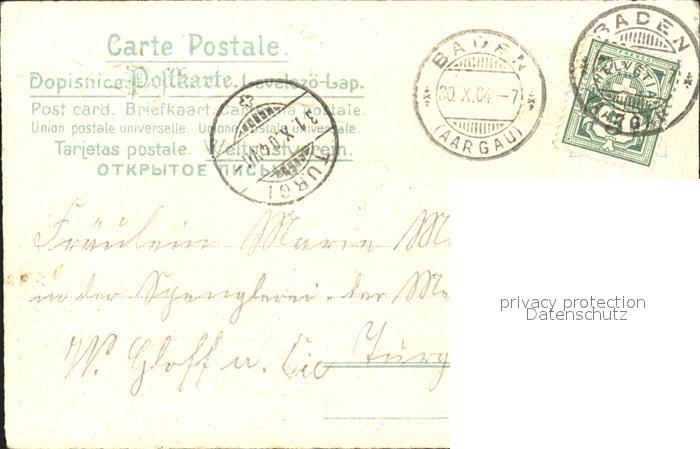 Carte Postale.
Dopisnice. Postkarte. Levelező-Lap.
Post card. Briefkaart. postale.
Union postale universelle. Unione postale universale.
Tarjetas postale. Weltpostverein.
ОТКРЫТОЕ
BADEN
30.X.04.-7
(AARGAU)
BADEN
HELVETIA
31.X.04
TURGI
Fräulein Marie
in der Spenglerei der
W. & Cie Turg
privacy protection
Datenschutz